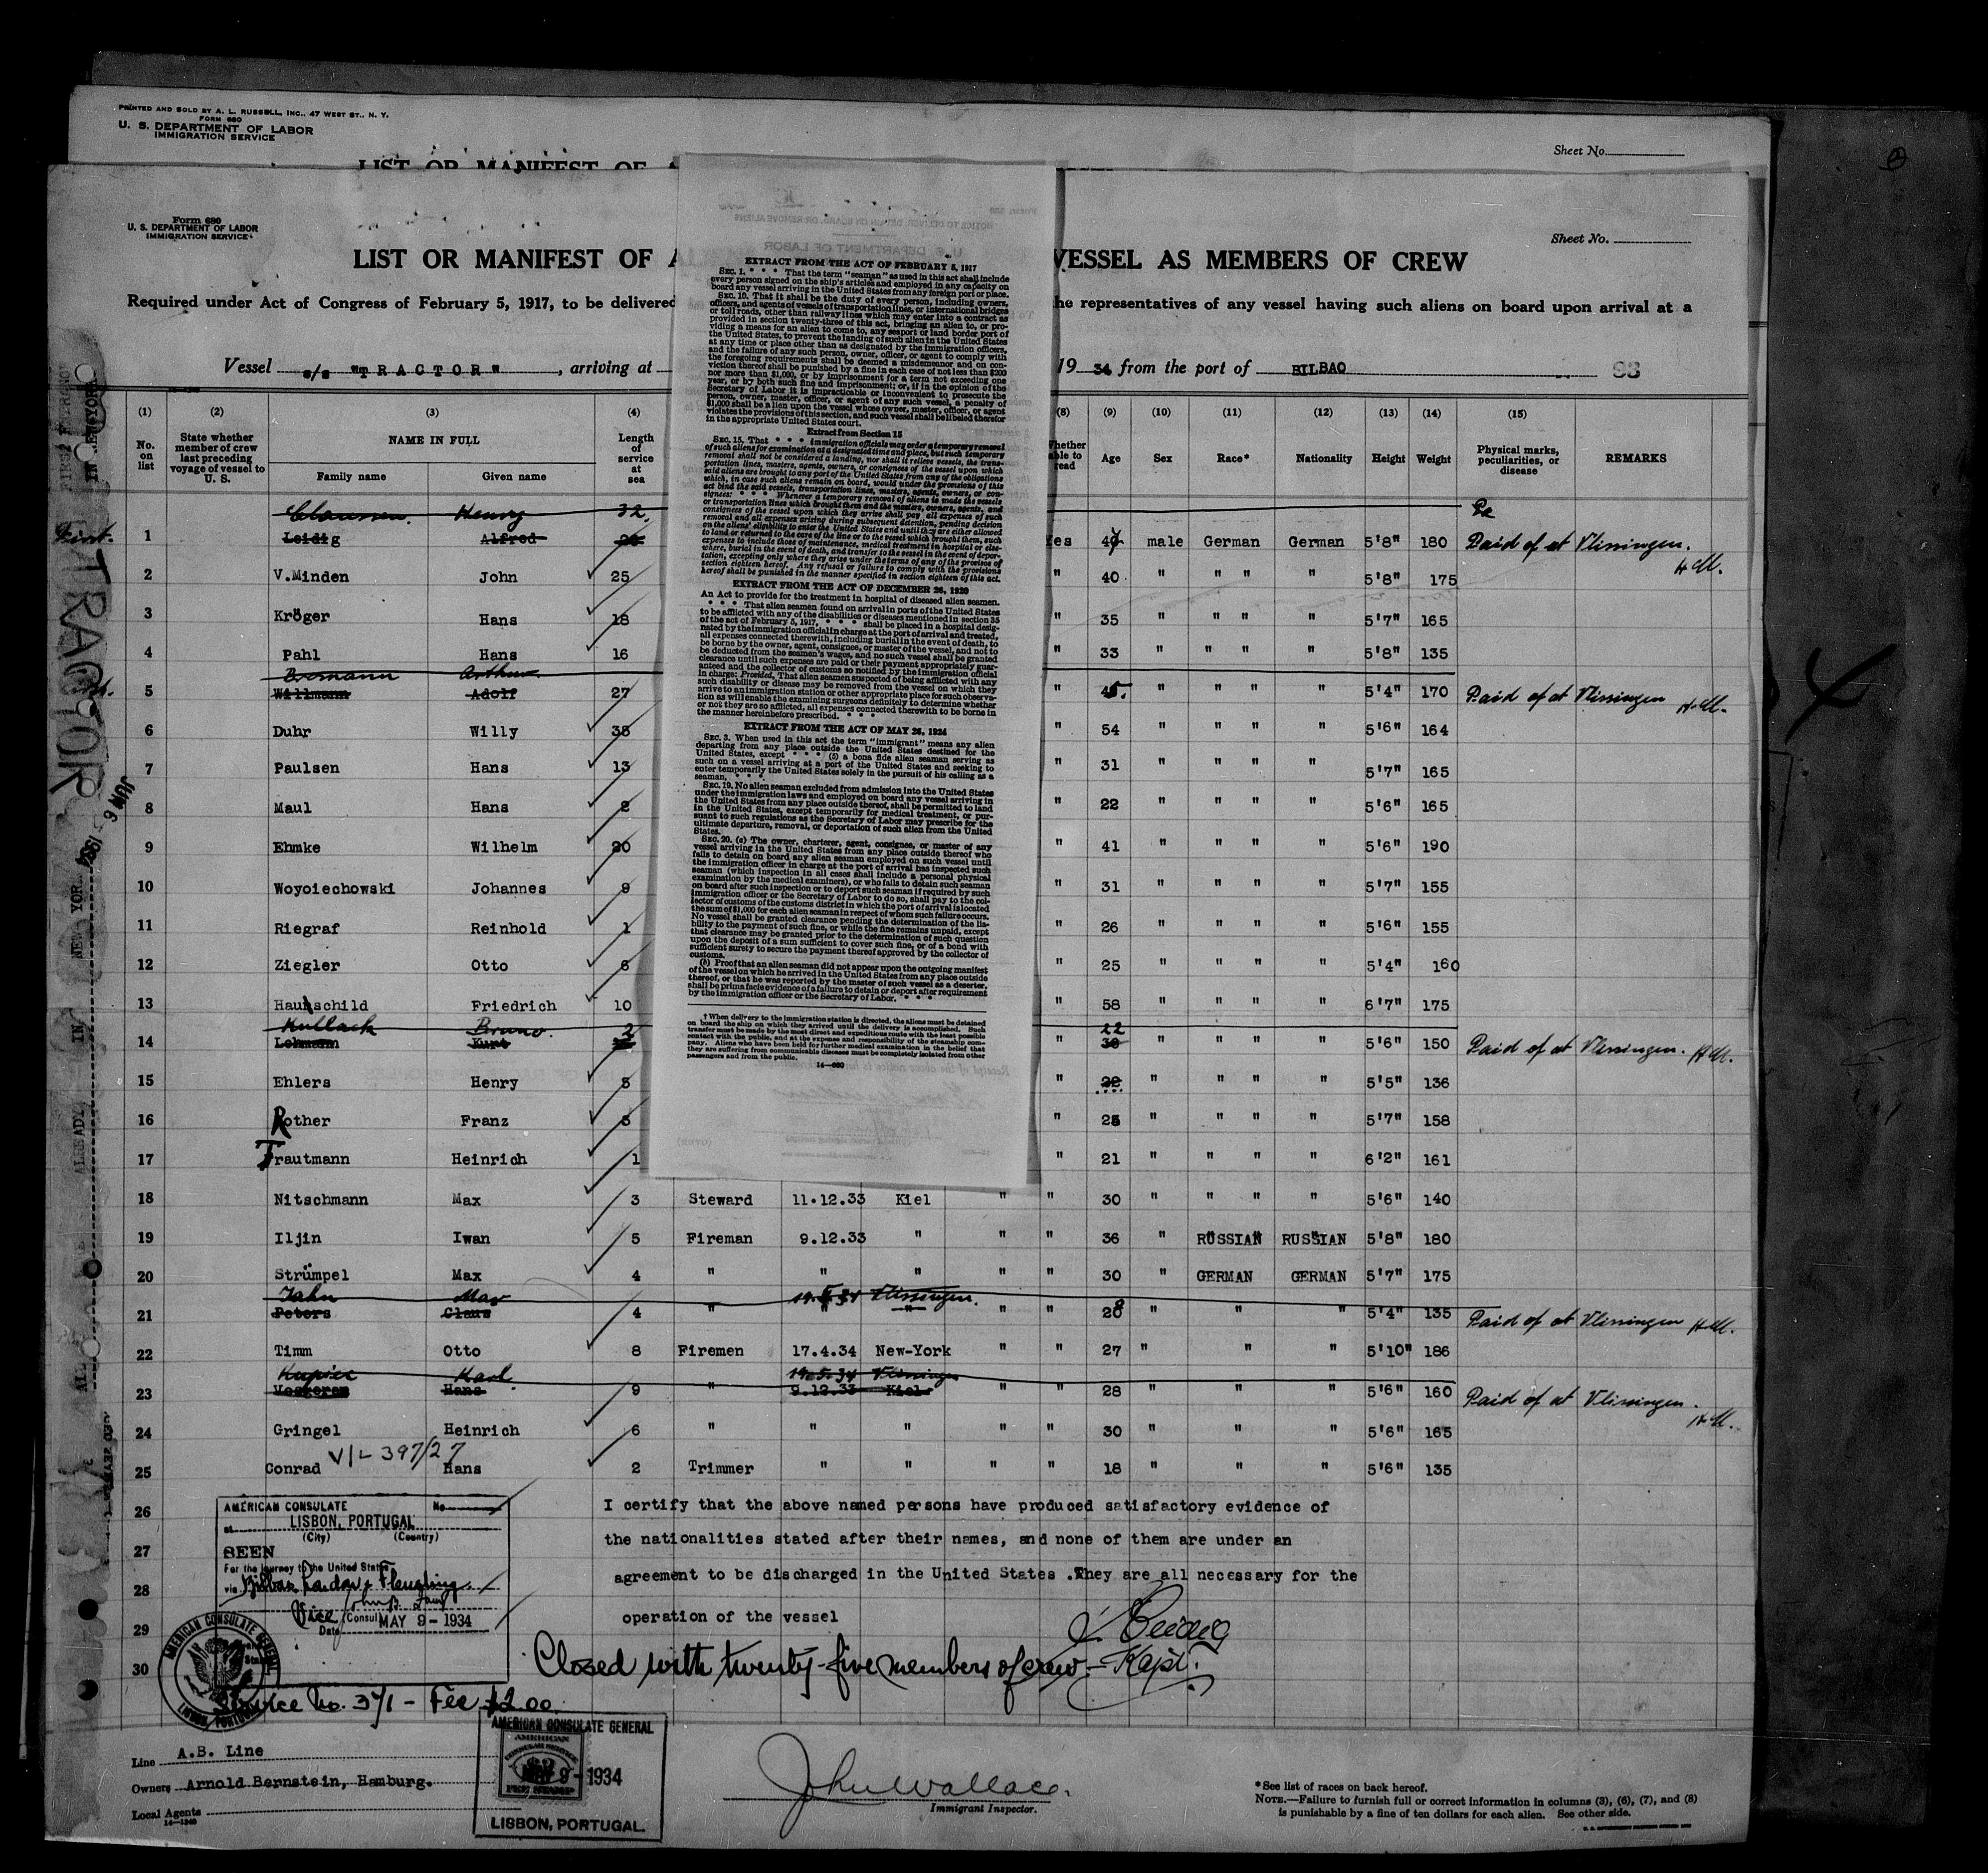 PRINTED AND SOLD BY A. L. RUSSELL, INC., 47 WEST ST., N. Y.
FORM 680
U. S. DEPARTMENT OF LABOR
IMMIGRATION SERVICE
Sheet No.
LIST OR MANIFEST OF A
Form 680
U. S. DEPARTMENT OF LABOR
IMMIGRATION SERVICE
Sheet No.
LIST OR MANIFEST OF A VESSEL AS MEMBERS OF CREW
Required under Act of Congress of February 5, 1917, to be delivered he representatives of any vessel having such aliens on board upon arrival at a
Vessel s/s "TRACTOR", arriving at 19 34 from the port of BILBAO 98
EXTRACT FROM THE ACT OF FEBRUARY 5, 1917
SEC. 1. * * * That the term "seaman" as used in this act shall include
every person signed on the ship's articles and employed in any capacity on
board any vessel arriving in the United States from any foreign port or place.
SEC. 10. That it shall be the duty of every person, including owners,
officers, and agents of vessels of transportation lines, or international bridges
or toll roads, other than railway lines which may enter into a contract as
provided in section twenty-three of this act, bringing an alien to, or pro-
viding a means for an alien to come to, any seaport or land border port of
the United States, to prevent the landing of such alien in the United States
at any time or place other than as designated by the immigration officers,
and the failure of any such person, owner, officer, or agent to comply with
the foregoing requirements shall be deemed a misdemeanor and on con-
viction thereof shall be punished by a fine in each case of not less than $200
nor more than $1,000, or by imprisonment for a term not exceeding one
year, or by both such fine and imprisonment; or, if in the opinion of the
Secretary of Labor it is impracticable or inconvenient to prosecute the
person, owner, master, officer, or agent of any such vessel, a penalty of
$1,000 shall be a lien upon the vessel whose owner, master, officer, or agent
violates the provisions of this section, and such vessel shall be libeled therefor
in the appropriate United States court.
Extract from Section 15
SEC. 15. That * * * immigration officials may order a temporary removal
of such aliens for examination at a designated time and place, but such temporary
removal shall not be considered a landing, nor shall it relieve vessels, the trans-
portation lines, masters, agents, owners, or consignees of the vessel upon which
said aliens are brought to any port of the United States from any of the obligations
which, in case such aliens remain on board, would under the provisions of this
act bind the said vessels, transportation lines, masters, agents, owners, or con-
signees: * * * Whenever a temporary removal of aliens is made the vessels
or transportation lines which brought them and the masters, owners, agents, and
consignees of the vessel upon which they arrive shall pay all expenses of such
removal and all expenses arising during subsequent detention, pending decision
on the aliens' eligibility to enter the United States and until they are either allowed
to land or returned to the care of the line or to the vessel which brought them, such
expenses to include those of maintenance, medical treatment in hospital or else-
where, burial in the event of death, and transfer to the vessel in the event of depor-
tation, excepting only where they arise under the terms of any of the provisos of
section eighteen hereof. Any refusal or failure to comply with the provisions
hereof shall be punished in the manner specified in section eighteen of this act.
EXTRACT FROM THE ACT OF DECEMBER 26, 1920
An Act to provide for the treatment in hospital of diseased alien seamen.
* * * That alien seamen found on arrival in ports of the United States
to be afflicted with any of the disabilities or diseases mentioned in section 35
of the act of February 5, 1917, * * * shall be placed in a hospital desig-
nated by the immigration official in charge at the port of arrival and treated,
all expenses connected therewith, including burial in the event of death, to
be borne by the owner, agent, consignee, or master of the vessel, and not to
be deducted from the seamen's wages, and no such vessel shall be granted
clearance until such expenses are paid or their payment appropriately guar-
anteed and the collector of customs so notified by the immigration official
in charge: Provided, That alien seamen suspected of being afflicted with any
such disability or disease may be removed from the vessel on which they
arrive to an immigration station or other appropriate place for such observa-
tion as will enable the examining surgeons definitely to determine whether
or not they are so afflicted, all expenses connected therewith to be borne in
the manner hereinbefore prescribed. * * *
EXTRACT FROM THE ACT OF MAY 26, 1924
SEC. 3. When used in this act the term "immigrant" means any alien
departing from any place outside the United States destined for the
United States, except * * * (5) a bona fide alien seaman serving as
such on a vessel arriving at a port of the United States and seeking to
enter temporarily the United States solely in the pursuit of his calling as a
seaman, * * *.
SEC. 19. No alien seaman excluded from admission into the United States
under the immigration laws and employed on board any vessel arriving in
the United States from any place outside thereof, shall be permitted to land
in the United States, except temporarily for medical treatment, or pur-
suant to such regulations as the Secretary of Labor may prescribe for the
ultimate departure, removal, or deportation of such alien from the United
States.
SEC. 20. (a) The owner, charterer, agent, consignee, or master of any
vessel arriving in the United States from any place outside thereof who
fails to detain on board any alien seaman employed on such vessel until
the immigration officer in charge at the port of arrival has inspected such
seaman (which inspection in all cases shall include a personal physical
examination by the medical examiners), or who fails to detain such seaman
on board after such inspection or to deport such seaman if required by such
immigration officer or the Secretary of Labor to do so, shall pay to the col-
lector of customs of the customs district in which the port of arrival is located
the sum of $1,000 for each alien seaman in respect of whom such failure occurs.
No vessel shall be granted clearance pending the determination of the lia-
bility to the payment of such fine, or while the fine remains unpaid, except
that clearance may be granted prior to the determination of such question
upon the deposit of a sum sufficient to cover such fine, or of a bond with
sufficient surety to secure the payment thereof approved by the collector of
customs.
(b) Proof that an alien seaman did not appear upon the outgoing manifest
of the vessel on which he arrived in the United States from any place outside
thereof, or that he was reported by the master of such vessel as a deserter,
shall be prima facie evidence of a failure to detain or deport after requirement
by the immigration officer or the Secretary of Labor. * * *
† When delivery to the immigration station is directed, the aliens must be detained
on board the ship on which they arrived until the delivery is accomplished. Such
transfer must be made by the most direct and expeditious route with the least possible
contact with the public, and at the expense and responsibility of the steamship com-
pany. Aliens who have been held for further medical examination in the belief that
they are suffering from communicable diseases must be completely isolated from other
passengers and from the public.
14—680
(1) (2) (3) (4) (8) (9) (10) (11) (12) (13) (14) (15)
No. on list
State whether member of crew last preceding voyage of vessel to U. S.
NAME IN FULL
Family name Given name
Length of service at sea
Whether able to read
Age Sex Race* Nationality Height Weight
Physical marks, peculiarities, or disease
REMARKS
Claussen Henry 32
1 Leidig Alfred Yes 40 male German German 5'8" 180 Paid of at Vlissingen. H.M.
2 V.Minden John 25 " 40 " " " " 5'8" 175
3 Kröger Hans 18 " 35 " " " " 5'7" 165
4 Pahl Hans 16 " 33 " " " " 5'8" 135
Bormann Arthur
5 Willmann Adolf 27 " 45. " " " " 5'4" 170 Paid of at Vlissingen H.M.
6 Duhr Willy 35 " 54 " " " " 5'6" 164
7 Paulsen Hans 13 " 31 " " " " 5'7" 165
8 Maul Hans 8 " 22 " " " " 5'6" 165
9 Ehmke Wilhelm 20 " 41 " " " " 5'6" 190
10 Woyoiechowski Johannes 9 " 31 " " " " 5'7" 155
11 Riegraf Reinhold 1 " 26 " " " " 5'6" 155
12 Ziegler Otto 6 " 25 " " " " 5'4" 160
13 Hauschild Friedrich 10 " 58 " " " " 6'7" 175
Kullack Bruno 2 22
14 Lehmann Kurt " 30 " " " " 5'6" 150 Paid of at Vlissingen. H.M.
15 Ehlers Henry 5 " 22 " " " " 5'5" 136
16 Rother Franz 5 " 25 " " " " 5'7" 158
17 Trautmann Heinrich 1 " 21 " " " " 6'2" 161
18 Nitschmann Max 3 Steward 11.12.33 Kiel " " 30 " " " " 5'6" 140
19 Iljin Iwan 5 Fireman 9.12.33 " " " 36 " RUSSIAN RUSSIAN 5'8" 180
20 Strümpel Max 4 " " " " " 30 " GERMAN GERMAN 5'7" 175
Jahn Max 19.5.34 Vlissingen.
21 Peters Claus 4 " " " " 20 " " " 5'4" 135 Paid of at Vlissingen H.M.
22 Timm Otto 8 Firemen 17.4.34 New-York " " 27 " " " 5'10" 186
Karl 19.5.34 Vlissingen
23 Hans 9 " 9.12.33 Kiel " " 28 " " " 5'6" 160 Paid of at Vlissingen. H.M.
24 Gringel Heinrich 6 " " " " " 30 " " " 5'6" 165
V/L 397/27
25 Conrad Hans 2 Trimmer " " " " 18 " " " 5'6" 135
26 I certify that the above named persons have produced satisfactory evidence of
27 the nationalities stated after their names, and none of them are under an
28 agreement to be discharged in the United States .They are all necessary for the
29 operation of the vessel
30 Closed with twenty-five members of crew.- Kapt.
AMERICAN CONSULATE No.
at LISBON, PORTUGAL
(City) (Country)
SEEN
For the journey to the United States
via Bilbao,
Vice Consul
Date MAY 9 - 1934
AMERICAN CONSULATE GENERAL
LISBON, PORTUGAL
Service No. 371 - Fee $2.00.
AMERICAN CONSULATE GENERAL
AMERICAN
CONSULAR SERVICE
$2
FEE STAMP
MAY 9 - 1934
LISBON, PORTUGAL.
Line A.B. Line
Owners Arnold Bernstein, Hamburg.
Local Agents
14—1240
John Wallace.
Immigrant Inspector.
*See list of races on back hereof.
NOTE.—Failure to furnish full or correct information in columns (3), (6), (7), and (8)
is punishable by a fine of ten dollars for each alien. See other side.
TRACTOR